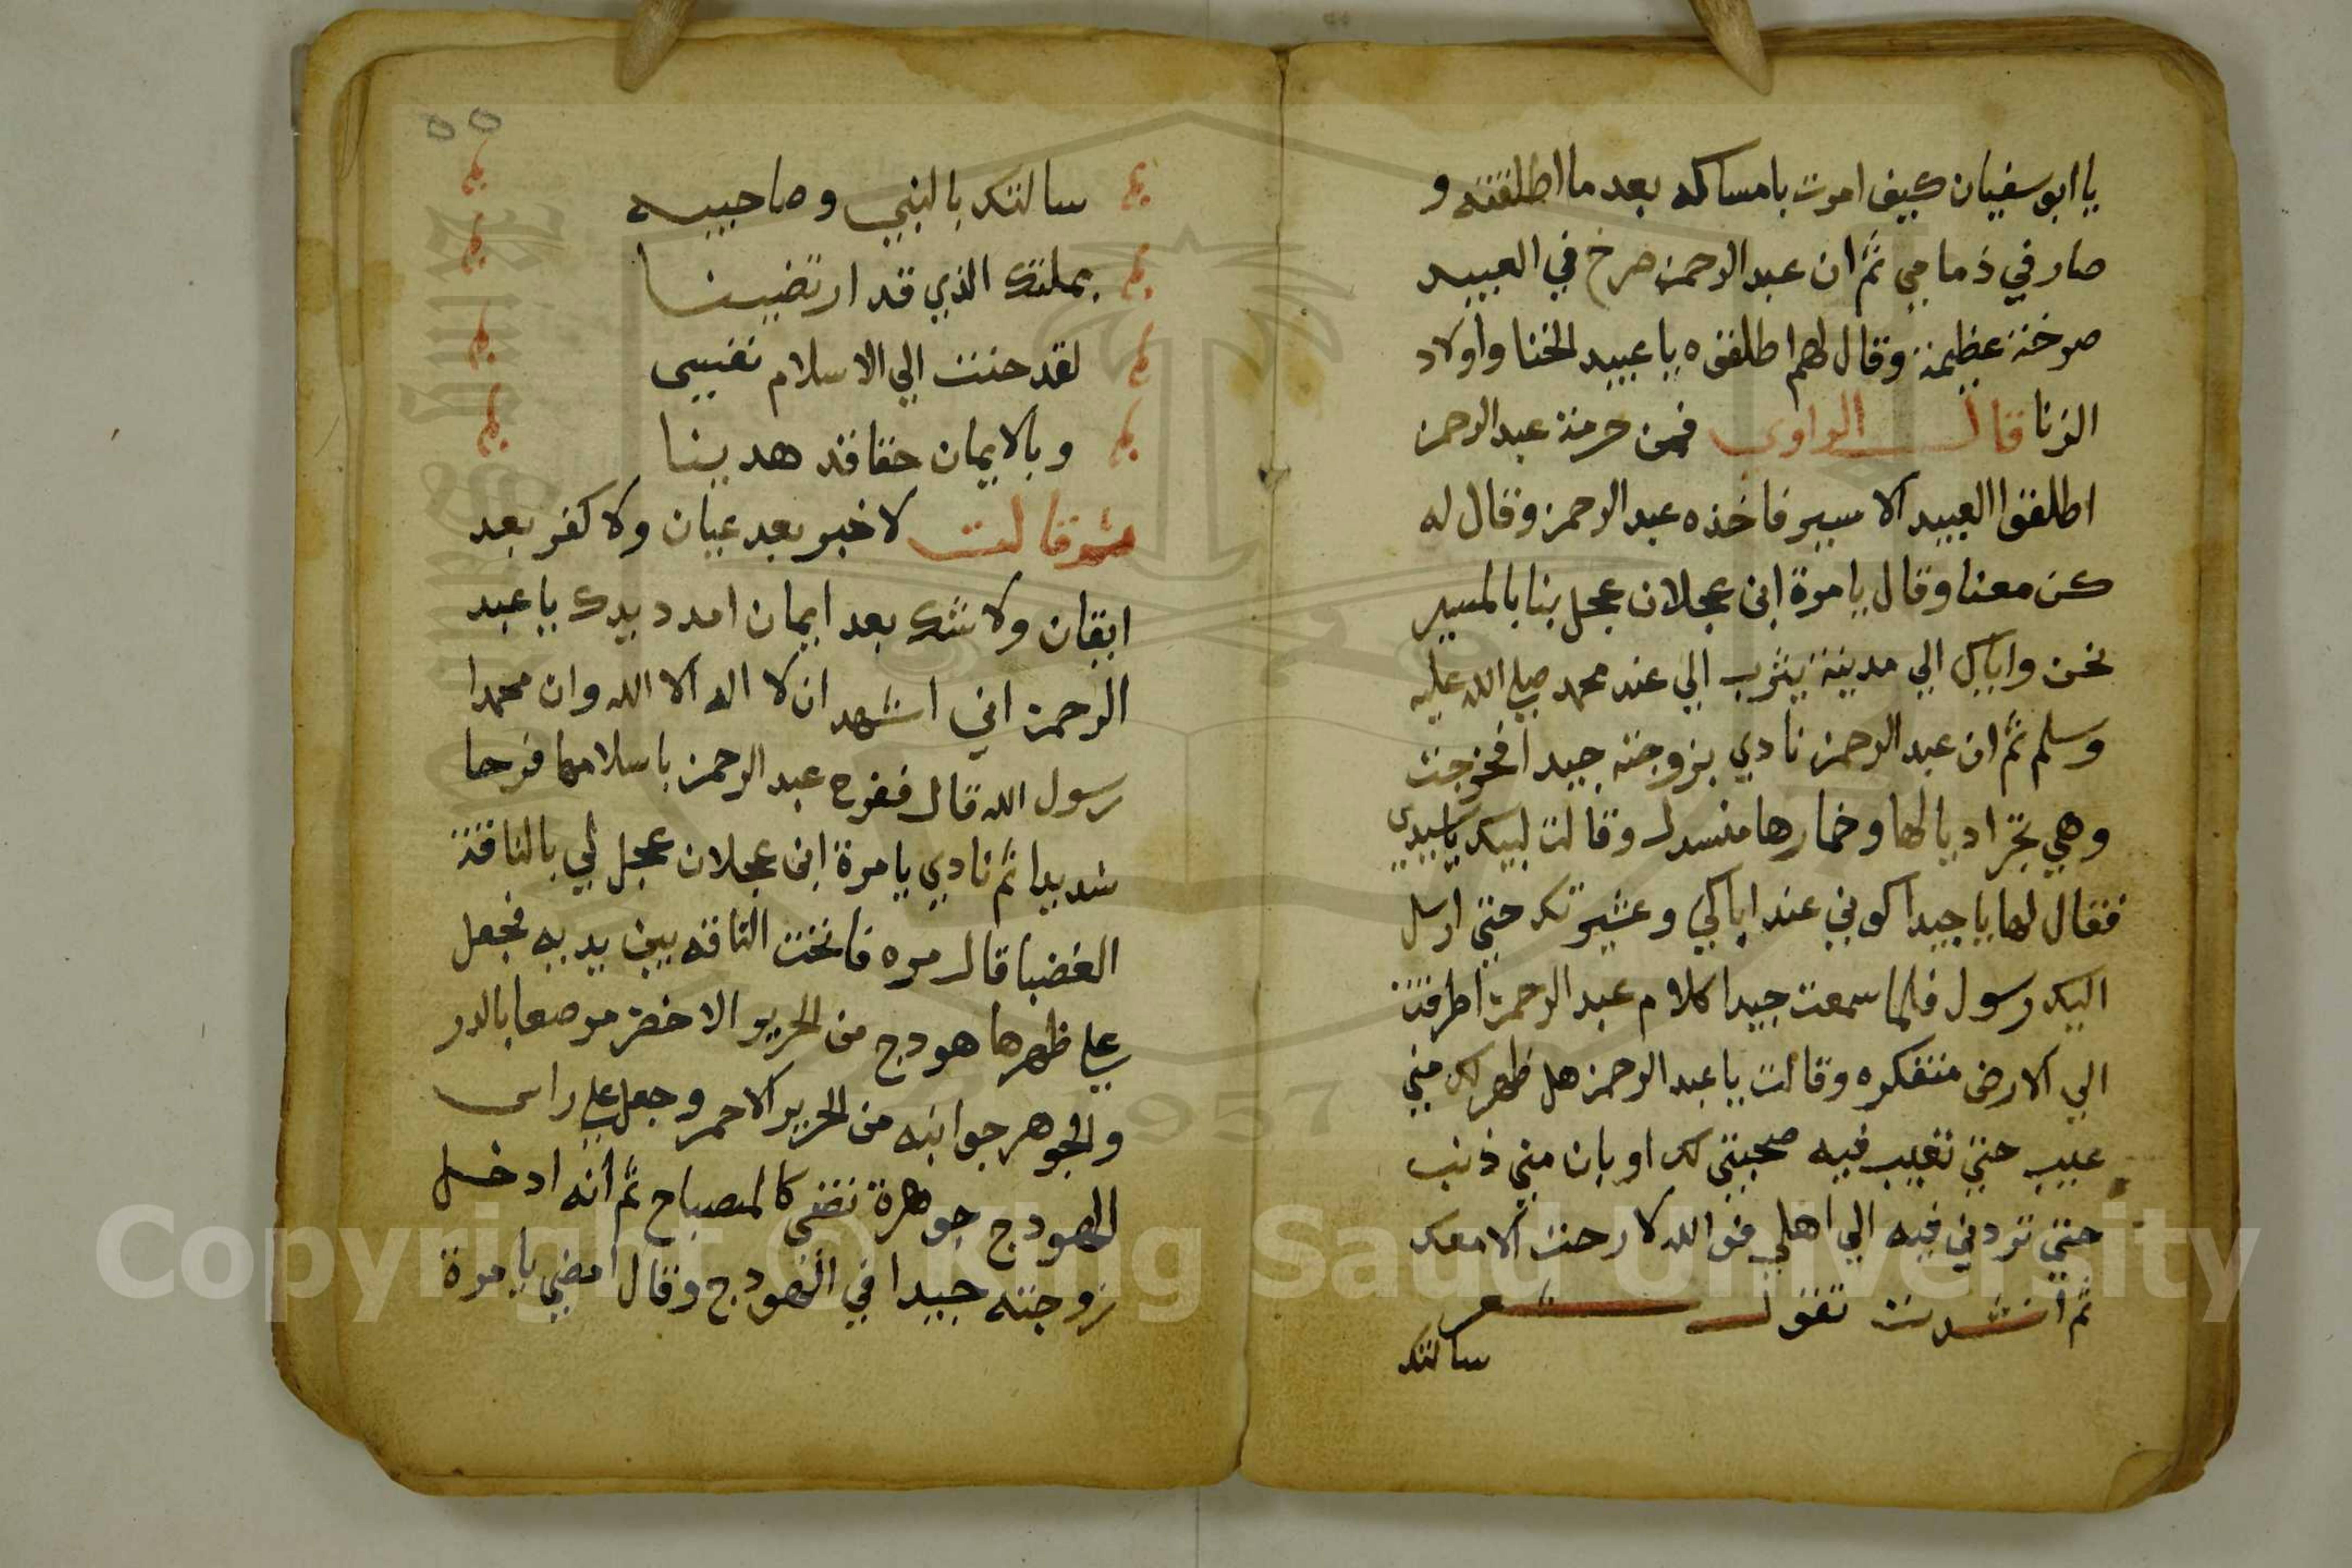 يا ابو سفيان كيف امرت بامساكه بعد ما اطلقته و
صار في ذمامي ثم ان عبد الرحمن صرخ في العبيد
صرخة عظيمة وقال لهم اطلقوه يا عبيد الخنا واولاد
الزنا قال الراوي فمن حرمة عبد الرحمن
اطلقوا العبيد الاسير فاخذه عبد الرحمن وقال له
كن معنا وقال يا مرة ابن عجلان عجل بنا بالمسير
نحن واياك الي مدينة يثرب الي عند محمد صلي الله عليه
وسلم ثم ان عبد الرحمن نادي بزوجته جيدا فخرجت
وهي تجر اديالها وخمارها منسدل وقالت لبيك يا سيدي
فقال لها يا جيدا كوني عند اباكي وعشيرتك حتي ارسل
اليك رسول فلما سمعت جيدا كلام عبد الرحمن اطرقت
الي الارض متفكره وقالت يا عبد الرحمن هل ظهر لك مني
عيب حتي تعيب فيه صحبتي لك او بان مني ذنب
حتي تردني فيه الي اهلي فو الله لا رحت الا معك
ثم انشدت تقول شعر
سالتك
٥٥
سالتك بالنبي وصاحبيه
بملتك الذي قد ارتضينا
لقد حننت الي الاسلام نفسي
وبالايمان حقا قد هدينا
ثم قالت لا خبر بعد عيان ولا كفر بعد
ايقان ولا شك بعد ايمان امدد يدك يا عبد
الرحمن اني اشهد ان لا اله الا الله وان محمدا
رسول الله قال ففرح عبد الرحمن باسلامها فرحا
شديدا ثم نادي يا مرة ابن عجلان عجل لي بالناقة
الغضبا قال مره فانخت الناقه بين يديه فجعل
علي ظهرها هودج من الحرير الاخضر مرصعا بالدر
والجوهر جوانبه من الحرير الاحمر وجعل علي راس
الهودج جوهرة تضي كالمصباح ثم انه ادخل
زوجته جيدا في الهودج وقال امضي يا مرة
Copyright © King Saud University
1957